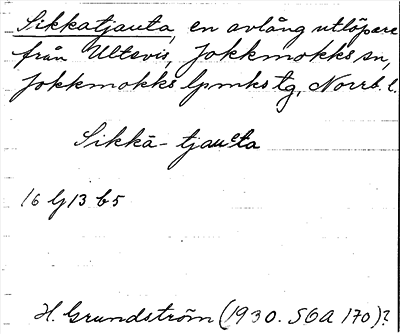 Sikkatjauta, en avlång utlöpare
från Ultevis, Jokkmokks sn,
Jokkmokks lpmks tg, Norrb. l.
Sikkā-tjaueta
16 G 13 b 5
H. Grundström (1930. SOA 170)?